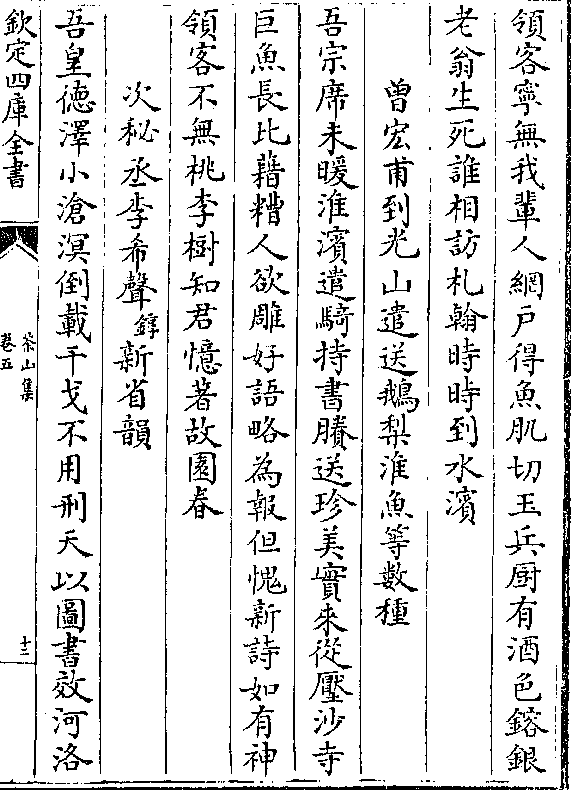 領客寧無我輩人網戸得魚肌切玉兵厨有酒色鎔銀
老翁生死誰相訪札翰時時到水濱
曽宏甫到光山遣送鵝梨淮魚等數種
吾宗席未暖淮濱遣騎持書賸送珍美實來從壓沙寺
巨魚長比藉糟人欲雕好語略為報但愧新詩如有神
領客不無桃李樹知君憶著故園春
次秘丞李希聲錞新省韻
吾皇徳澤小滄溟倒載干戈不用刑天以圖書效河洛
欽定四庫全書
茶山集
卷五
十三